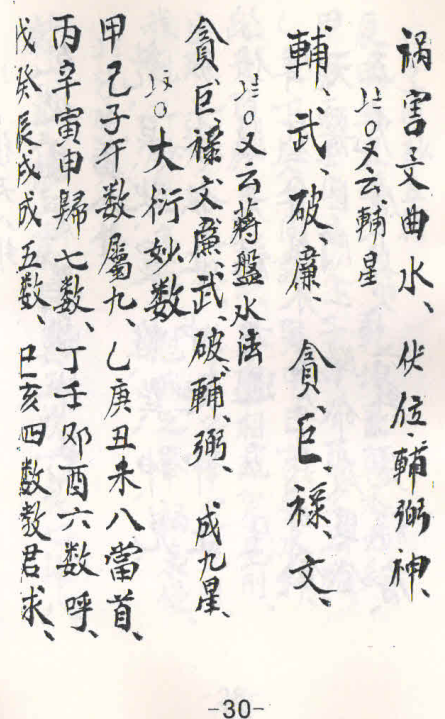 祸害文曲水、伏位、輔弼神、
〇又云輔星
輔、武、破、廉、貪、巨、祿、文、
〇又云蔣盤水法
貪、巨、祿、文、廉、武、破、輔、弼、成九星、
〇大衍妙数
甲己子午数屬九、乙庚丑未八當首、
丙辛寅申歸七数、丁壬卯酉六数呼、
戊癸辰戌成五数、巳亥四数教君求、
-30-